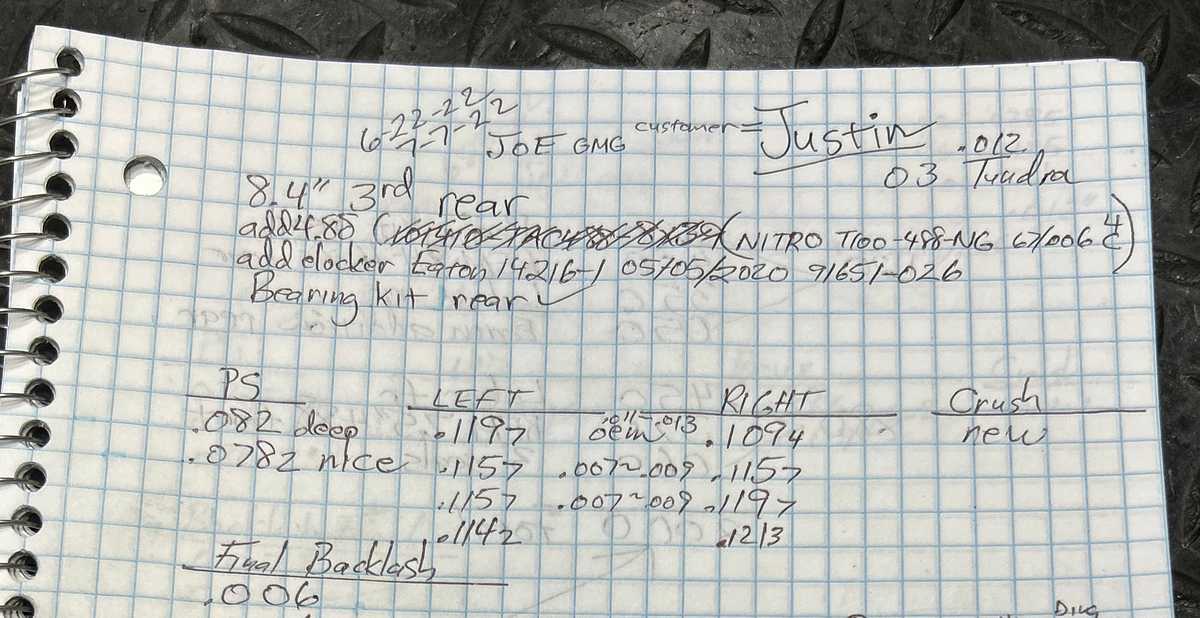 6-22-22
7-7-22 JOE GMG customer = Justin .012
03 Tundra
8.4" 3rd rear
add 4.88 (NITRO T100-488-NG 67006 4/C)
add elocker Eaton 14216-1 05/05/2020 91651-026
Bearing kit rear ✓
PS LEFT RIGHT Crush
.082 deep .1197 oem .011"-.013 .1094 new
.0782 nice .1157 .007~.009 .1157
.1157 .007~.009 .1197
.1142 .1213
Final Backlash
.006
Ding